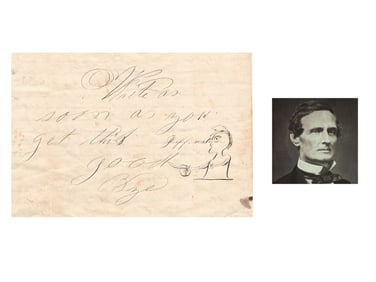 Write as
soon as you
get this
good
Bye